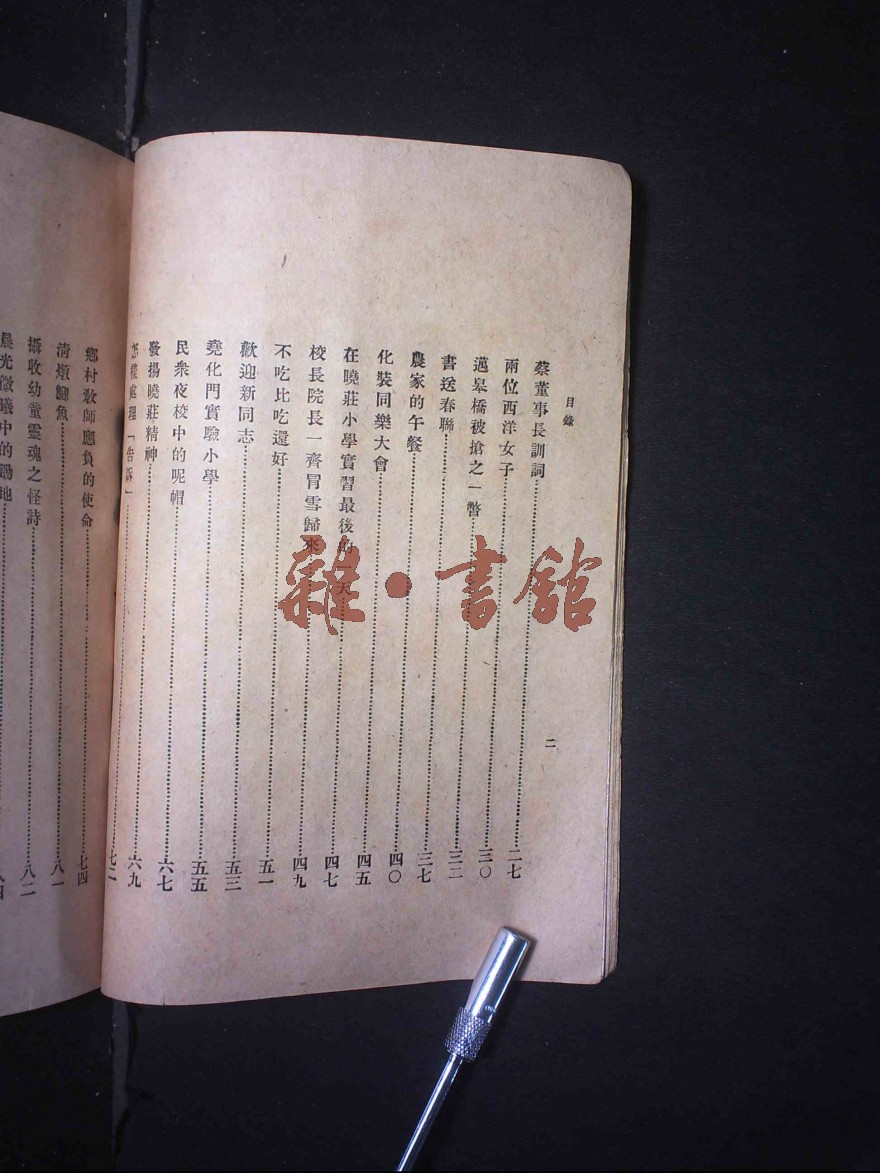 目錄
二
蔡董事長訓詞 二七
兩位西洋女子 三〇
邁皋橋被搶之一瞥 三二
書送春聯 三七
農家的午餐 四〇
化裝同樂大會 四五
在曉莊小學實習最後的一天 四七
校長院長一齊冒雪歸來 四九
不吃比吃還好 五一
歡迎新同志 五三
堯化門實驗小學 五五
民衆夜校中的呢帽 六七
發揚曉莊精神 六九
怎樣處理「告訴」 七二
鄉村教師應負的使命 七四
清燉鯽魚 八一
攝收幼童靈魂之怪詩 八二
晨光微曦中的鋤地
雜·書館